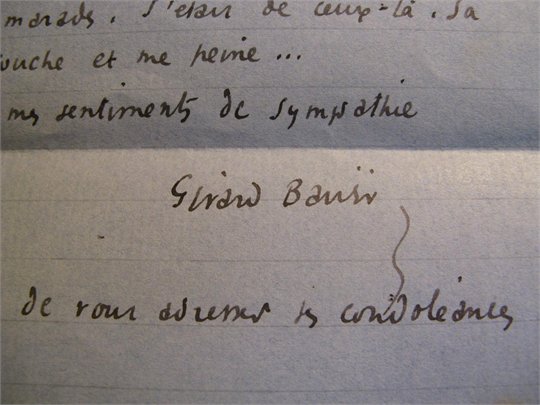 marads. J'étais de ceux-là. Sa
ouche et me peine ...
mes sentiments de sympathie
Gérard Bauër
de vous adresser ses condoléances